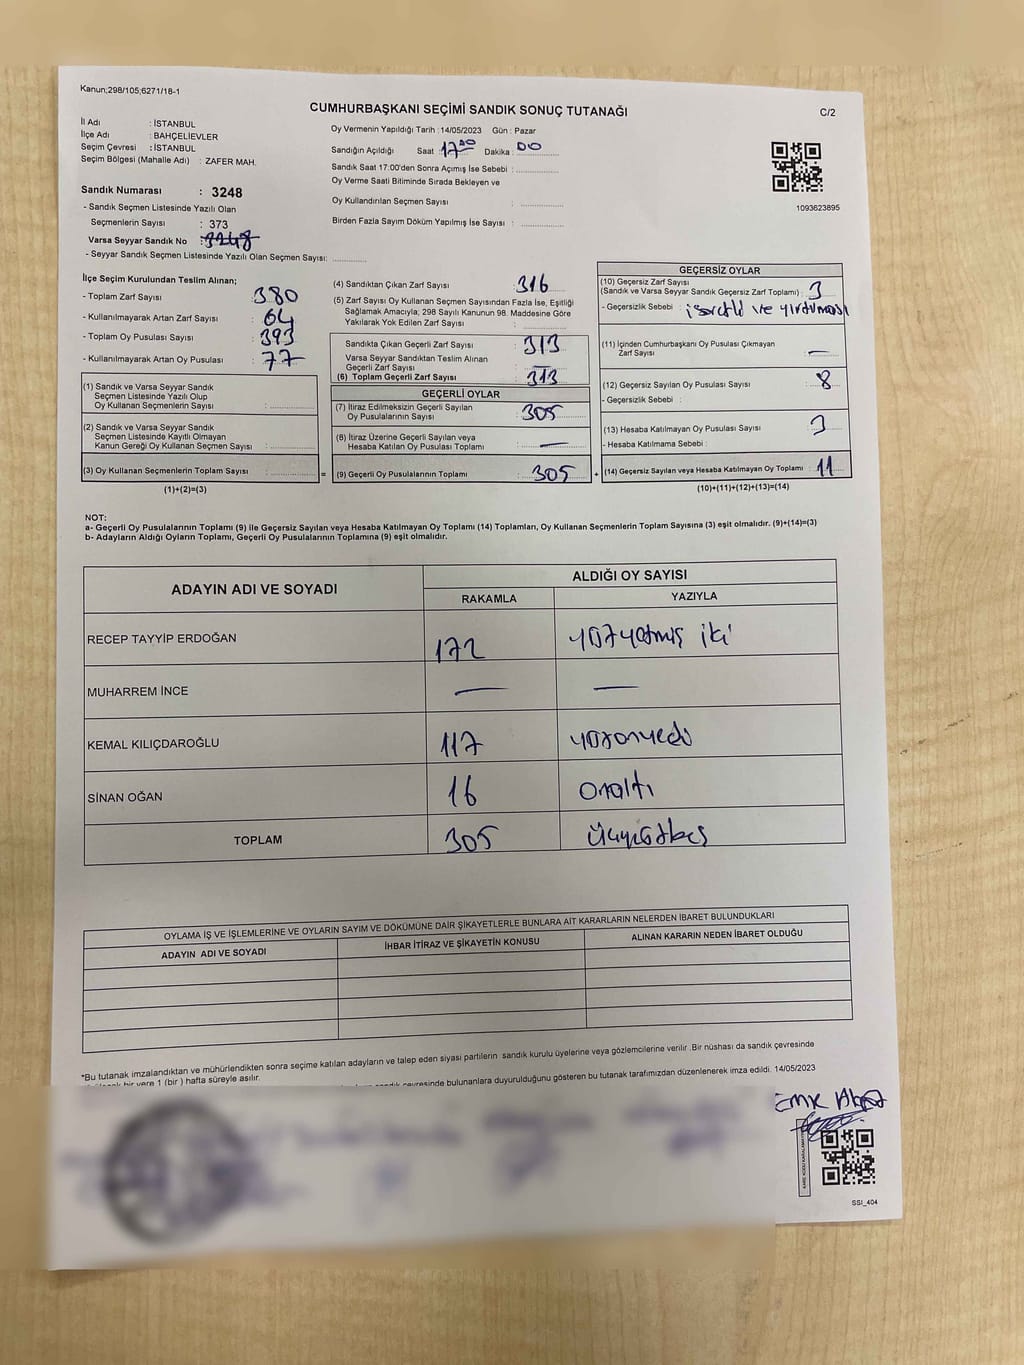 Kanun;298/105;6271/18-1
CUMHURBAŞKANI SEÇİMİ SANDIK SONUÇ TUTANAĞI
C/2
İl Adı : İSTANBUL
İlçe Adı : BAHÇELİEVLER
Seçim Çevresi : İSTANBUL
Seçim Bölgesi (Mahalle Adı) : ZAFER MAH.
Oy Vermenin Yapıldığı Tarih : 14/05/2023 Gün : Pazar
Sandığın Açıldığı Saat : 17:00 Dakika : 00
Sandık Saat 17:00'den Sonra Açılmış İse Sebebi :
Oy Verme Saati Bitiminde Sırada Bekleyen ve
Oy Kullandırılan Seçmen Sayısı :
Birden Fazla Sayım Döküm Yapılmış İse Sayısı :
1093623895
Sandık Numarası : 3248
- Sandık Seçmen Listesinde Yazılı Olan
Seçmenlerin Sayısı : 373
Varsa Seyyar Sandık No : 3248
- Seyyar Sandık Seçmen Listesinde Yazılı Olan Seçmen Sayısı:
İlçe Seçim Kurulundan Teslim Alınan;
- Toplam Zarf Sayısı 380
- Kullanılmayarak Artan Zarf Sayısı 64
- Toplam Oy Pusulası Sayısı 393
- Kullanılmayarak Artan Oy Pusulası 77
(1) Sandık ve Varsa Seyyar Sandık
Seçmen Listesinde Yazılı Olup
Oy Kullanan Seçmenlerin Sayısı :
(2) Sandık ve Varsa Seyyar Sandık
Seçmen Listesinde Kayıtlı Olmayan
Kanun Gereği Oy Kullanan Seçmen Sayısı :
(3) Oy Kullanan Seçmenlerin Toplam Sayısı :
(1)+(2)=(3)
(4) Sandıktan Çıkan Zarf Sayısı : 316
(5) Zarf Sayısı Oy Kullanan Seçmen Sayısından Fazla İse, Eşitliği
Sağlamak Amacıyla; 298 Sayılı Kanunun 98. Maddesine Göre
Yakılarak Yok Edilen Zarf Sayısı :
Sandıkta Çıkan Geçerli Zarf Sayısı : 313
Varsa Seyyar Sandıktan Teslim Alınan
Geçerli Zarf Sayısı : —
(6) Toplam Geçerli Zarf Sayısı : 313
GEÇERLİ OYLAR
(7) İtiraz Edilmeksizin Geçerli Sayılan
Oy Pusulalarının Sayısı : 305
(8) İtiraz Üzerine Geçerli Sayılan veya
Hesaba Katılan Oy Pusulası Toplamı : —
= (9) Geçerli Oy Pusulalarının Toplamı : 305 +
GEÇERSİZ OYLAR
(10) Geçersiz Zarf Sayısı
(Sandık ve Varsa Seyyar Sandık Geçersiz Zarf Toplamı) : 3
- Geçersizlik Sebebi : işaretli ve yırtılması
(11) İçinden Cumhurbaşkanı Oy Pusulası Çıkmayan
Zarf Sayısı : —
(12) Geçersiz Sayılan Oy Pusulası Sayısı : 8
- Geçersizlik Sebebi :
(13) Hesaba Katılmayan Oy Pusulası Sayısı : 3
- Hesaba Katılmama Sebebi :
(14) Geçersiz Sayılan veya Hesaba Katılmayan Oy Toplamı : 11
(10)+(11)+(12)+(13)=(14)
NOT:
a- Geçerli Oy Pusulalarının Toplamı (9) ile Geçersiz Sayılan veya Hesaba Katılmayan Oy Toplamı (14) Toplamları, Oy Kullanan Seçmenlerin Toplam Sayısına (3) eşit olmalıdır. (9)+(14)=(3)
b- Adayların Aldığı Oyların Toplamı, Geçerli Oy Pusulalarının Toplamına (9) eşit olmalıdır.
ADAYIN ADI VE SOYADI
ALDIĞI OY SAYISI
RAKAMLA YAZIYLA
RECEP TAYYİP ERDOĞAN 172 yüzyetmiş iki
MUHARREM İNCE — —
KEMAL KILIÇDAROĞLU 117 yüzonyedi
SİNAN OĞAN 16 Onaltı
TOPLAM 305 üçyüzbeş
OYLAMA İŞ VE İŞLEMLERİNE VE OYLARIN SAYIM VE DÖKÜMÜNE DAİR ŞİKAYETLERLE BUNLARA AİT KARARLARIN NELERDEN İBARET BULUNDUKLARI
ADAYIN ADI VE SOYADI İHBAR İTİRAZ VE ŞİKAYETİN KONUSU ALINAN KARARIN NEDEN İBARET OLDUĞU
*Bu tutanak imzalandıktan ve mühürlendikten sonra seçime katılan adayların ve talep eden siyasi partilerin sandık kurulu üyelerine veya gözlemcilerine verilir .Bir nüshası da sandık çevresinde
bir yere 1 (bir ) hafta süreyle asılır.
çevresinde bulunanlara duyurulduğunu gösteren bu tutanak tarafımızdan düzenlenerek imza edildi. 14/05/2023
SSI_404